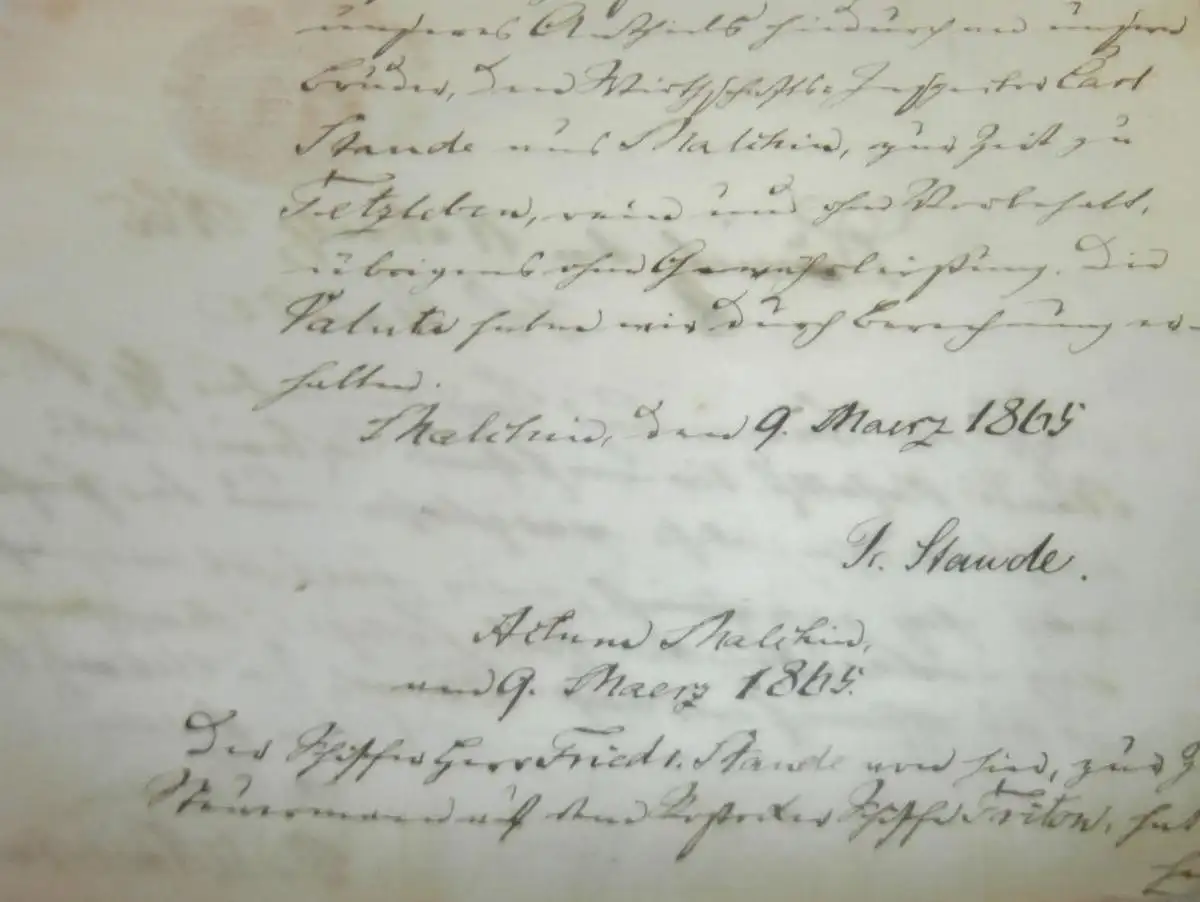 unseres Antheils hindurch an unsern
Bruder, den Wirthschafts-Inspector Carl
Staude aus Malchin, zur Zeit zu
Tetzleben, rein und ohne Vorbehalt,
übrigens ohne Gewährleistung. Die
Valuta haben wir durch Berechnung er-
halten.
Malchin, den 9. Maerz 1865
Fr. Staude.
Actum Malchin,
am 9. Maerz 1865.
Der Schiffer Herr Friedr. Staude von hier, zur Z
Steuermann auf dem Rostocker Schiffe Triton, hat